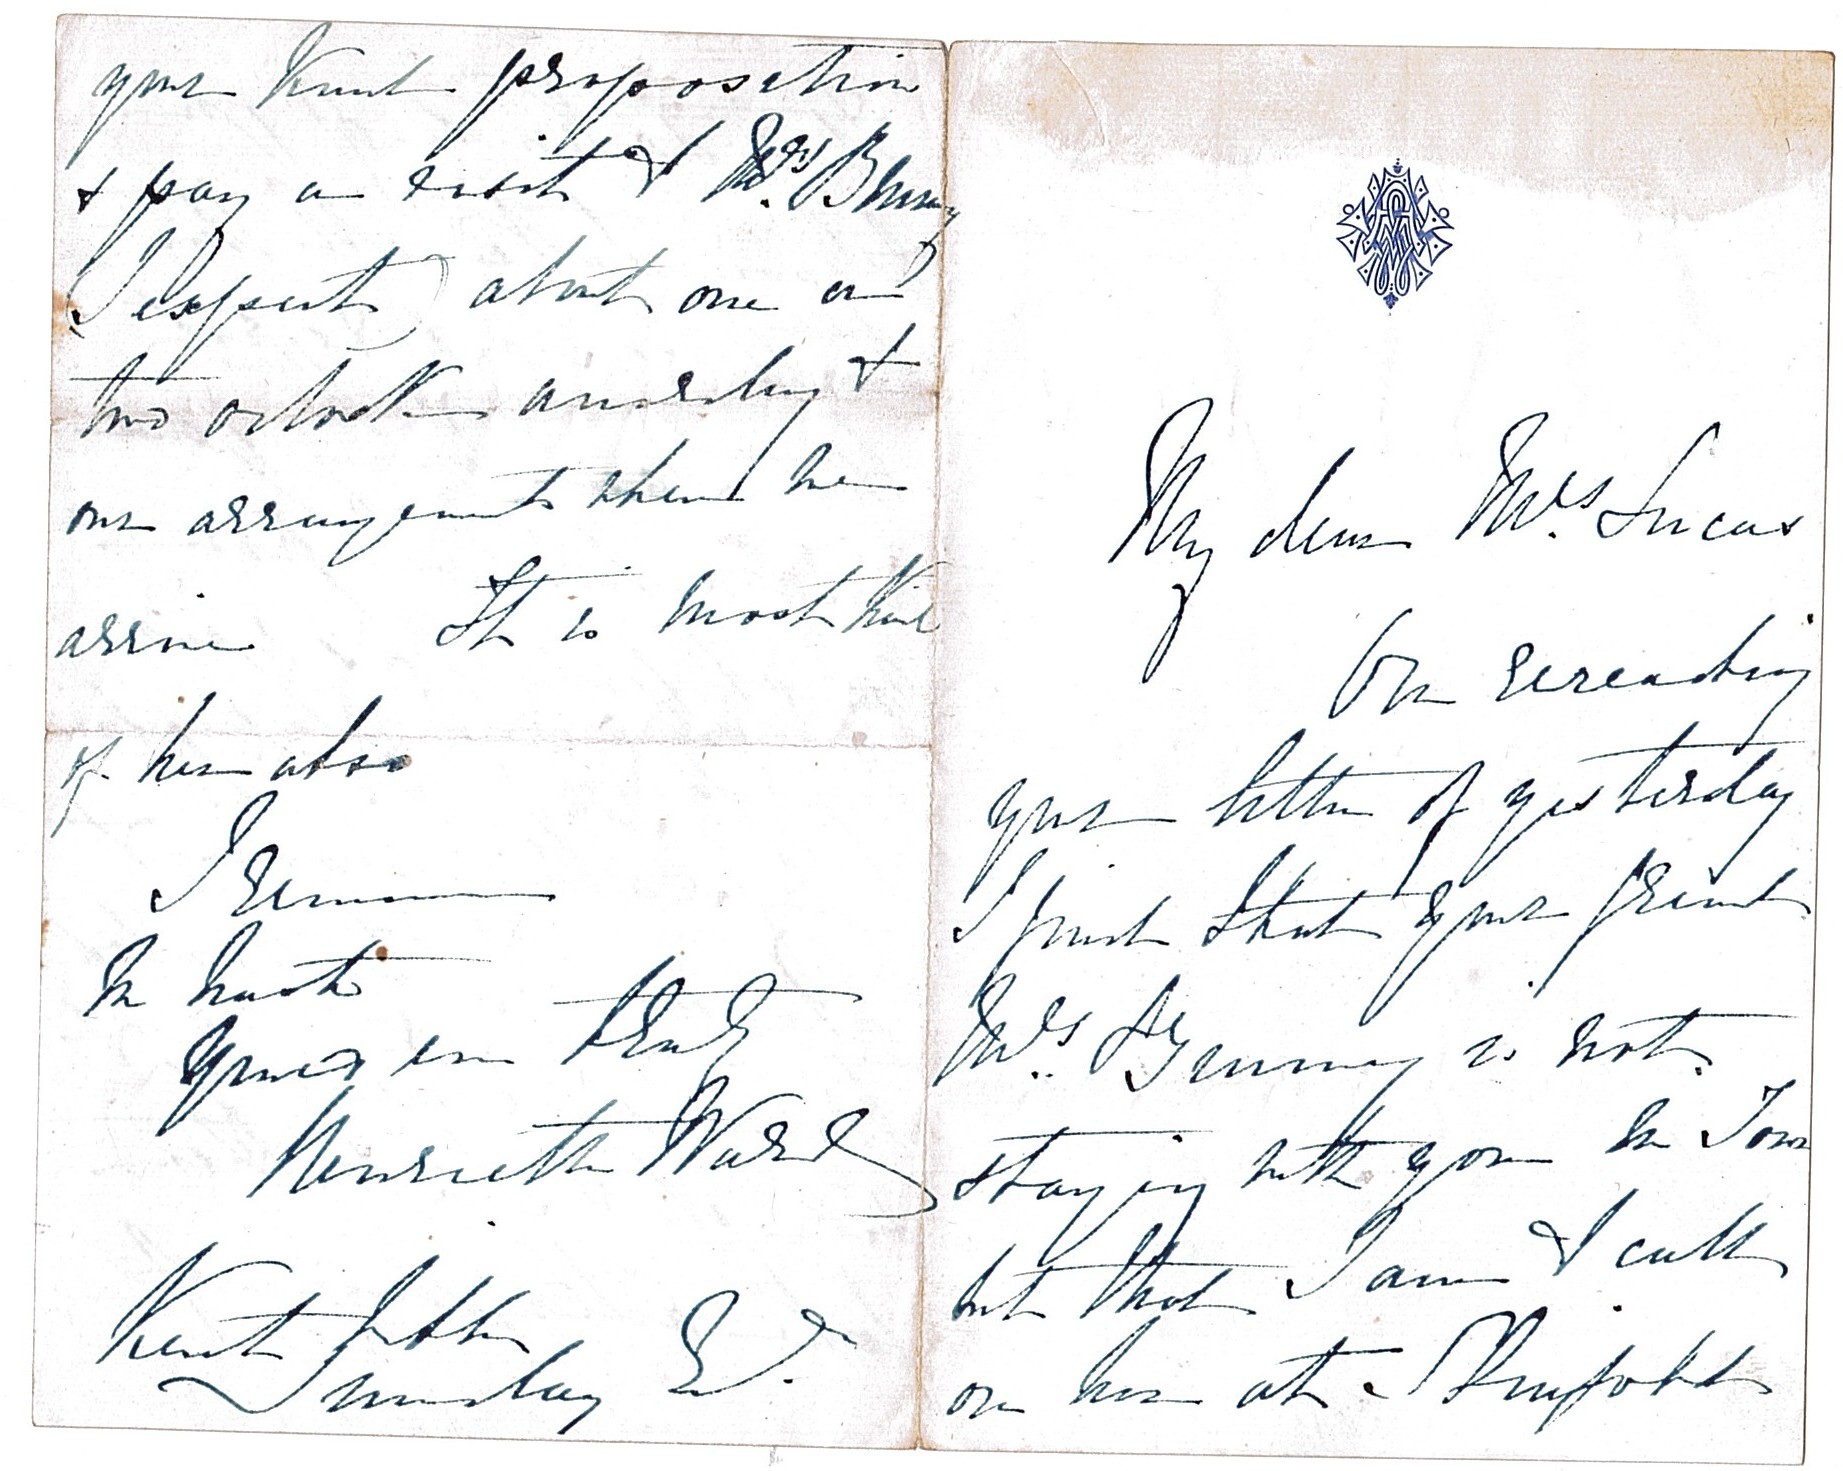 My dear Mrs. Lucas
On rereading
your letter of yesterday
I find that your friend
Mrs. is not
staying with you in Town
but that I am to call
on her at
your kind proposition
& pay a visit to Mrs.
(I expect) about one or
two o'clock on &
our arrangements when we
arrive It is most kind
of her also
I remain
In haste
yours very truly
Henrietta Ward
Kent
Sunday Ev.